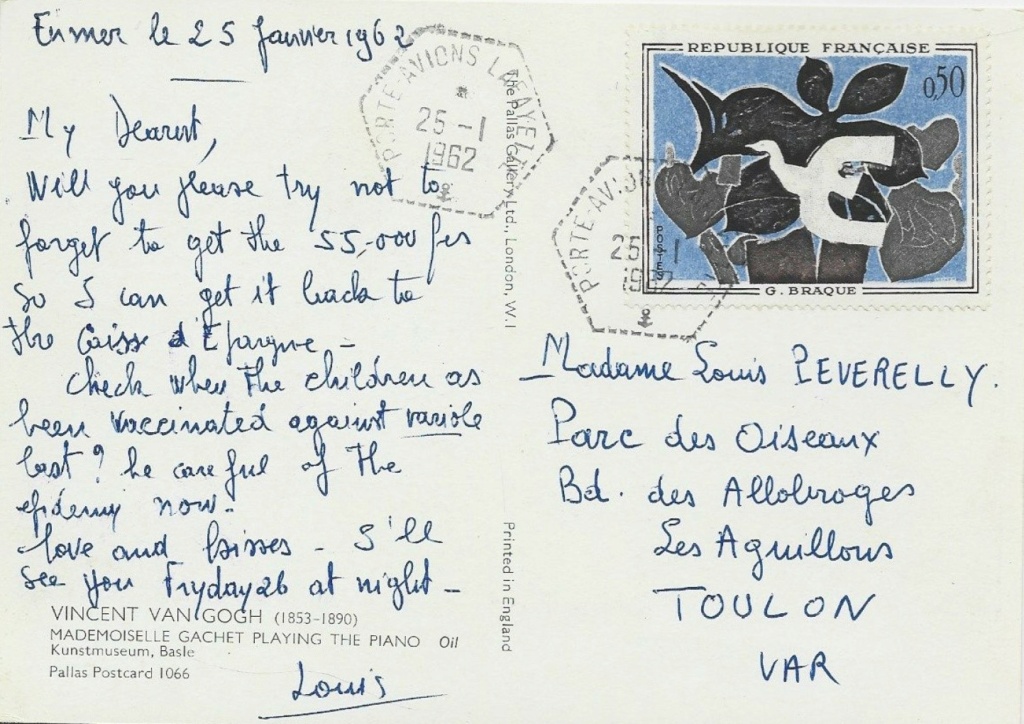 En mer le 25 Janvier 1962
My Dearest,
Will you please try not to
forget to get the 55,000 frs
so I can get it back to
the Caisse d'Epargne -
Check when the children as
been vaccinated against variole
last? be careful of the
epidemy now.
Love and kisses - I'll
see you Fryday 26 at night -
VINCENT VAN GOGH (1853-1890)
MADEMOISELLE GACHET PLAYING THE PIANO Oil
Kunstmuseum, Basle
Pallas Postcard 1066
Louis
PORTE-AVIONS LAFAYETTE
25-1
1962
The Pallas Gallery Ltd., London, W.1
Printed in England
REPUBLIQUE FRANÇAISE
0,50
POSTES
G. BRAQUE
PORTE-AVIONS
25-1
1962
Madame Louis PEVERELLY.
Parc des Oiseaux
Bd. des Allobroges
Les Aguillons
TOULON
VAR